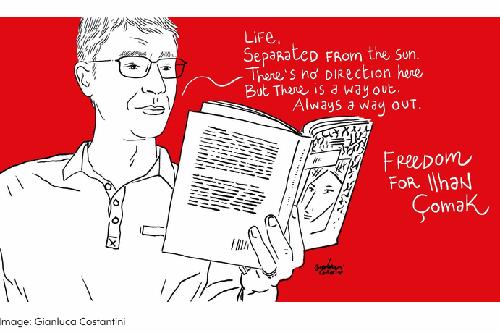 Life,
Separated from the sun.
There's no direction here
But there is a way out.
Always a way out.
Freedom
for Ilhan
Çomak
Image: Gianluca Costantini